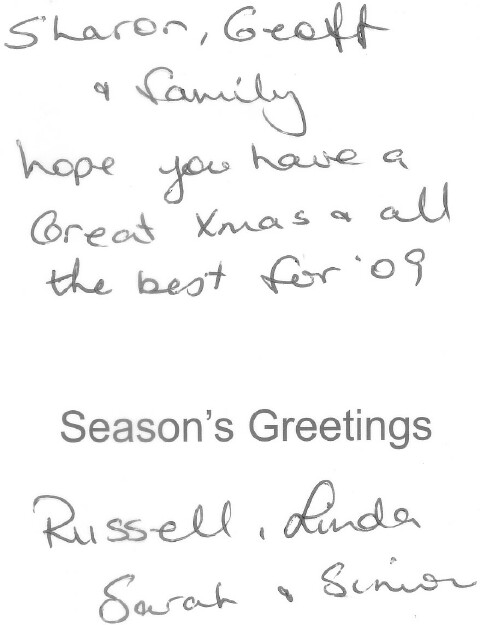 Sharon, Geoff
& family
hope you have a
Great Xmas & all
the best for '09
Season's Greetings
Russell, Linda
Sarah &